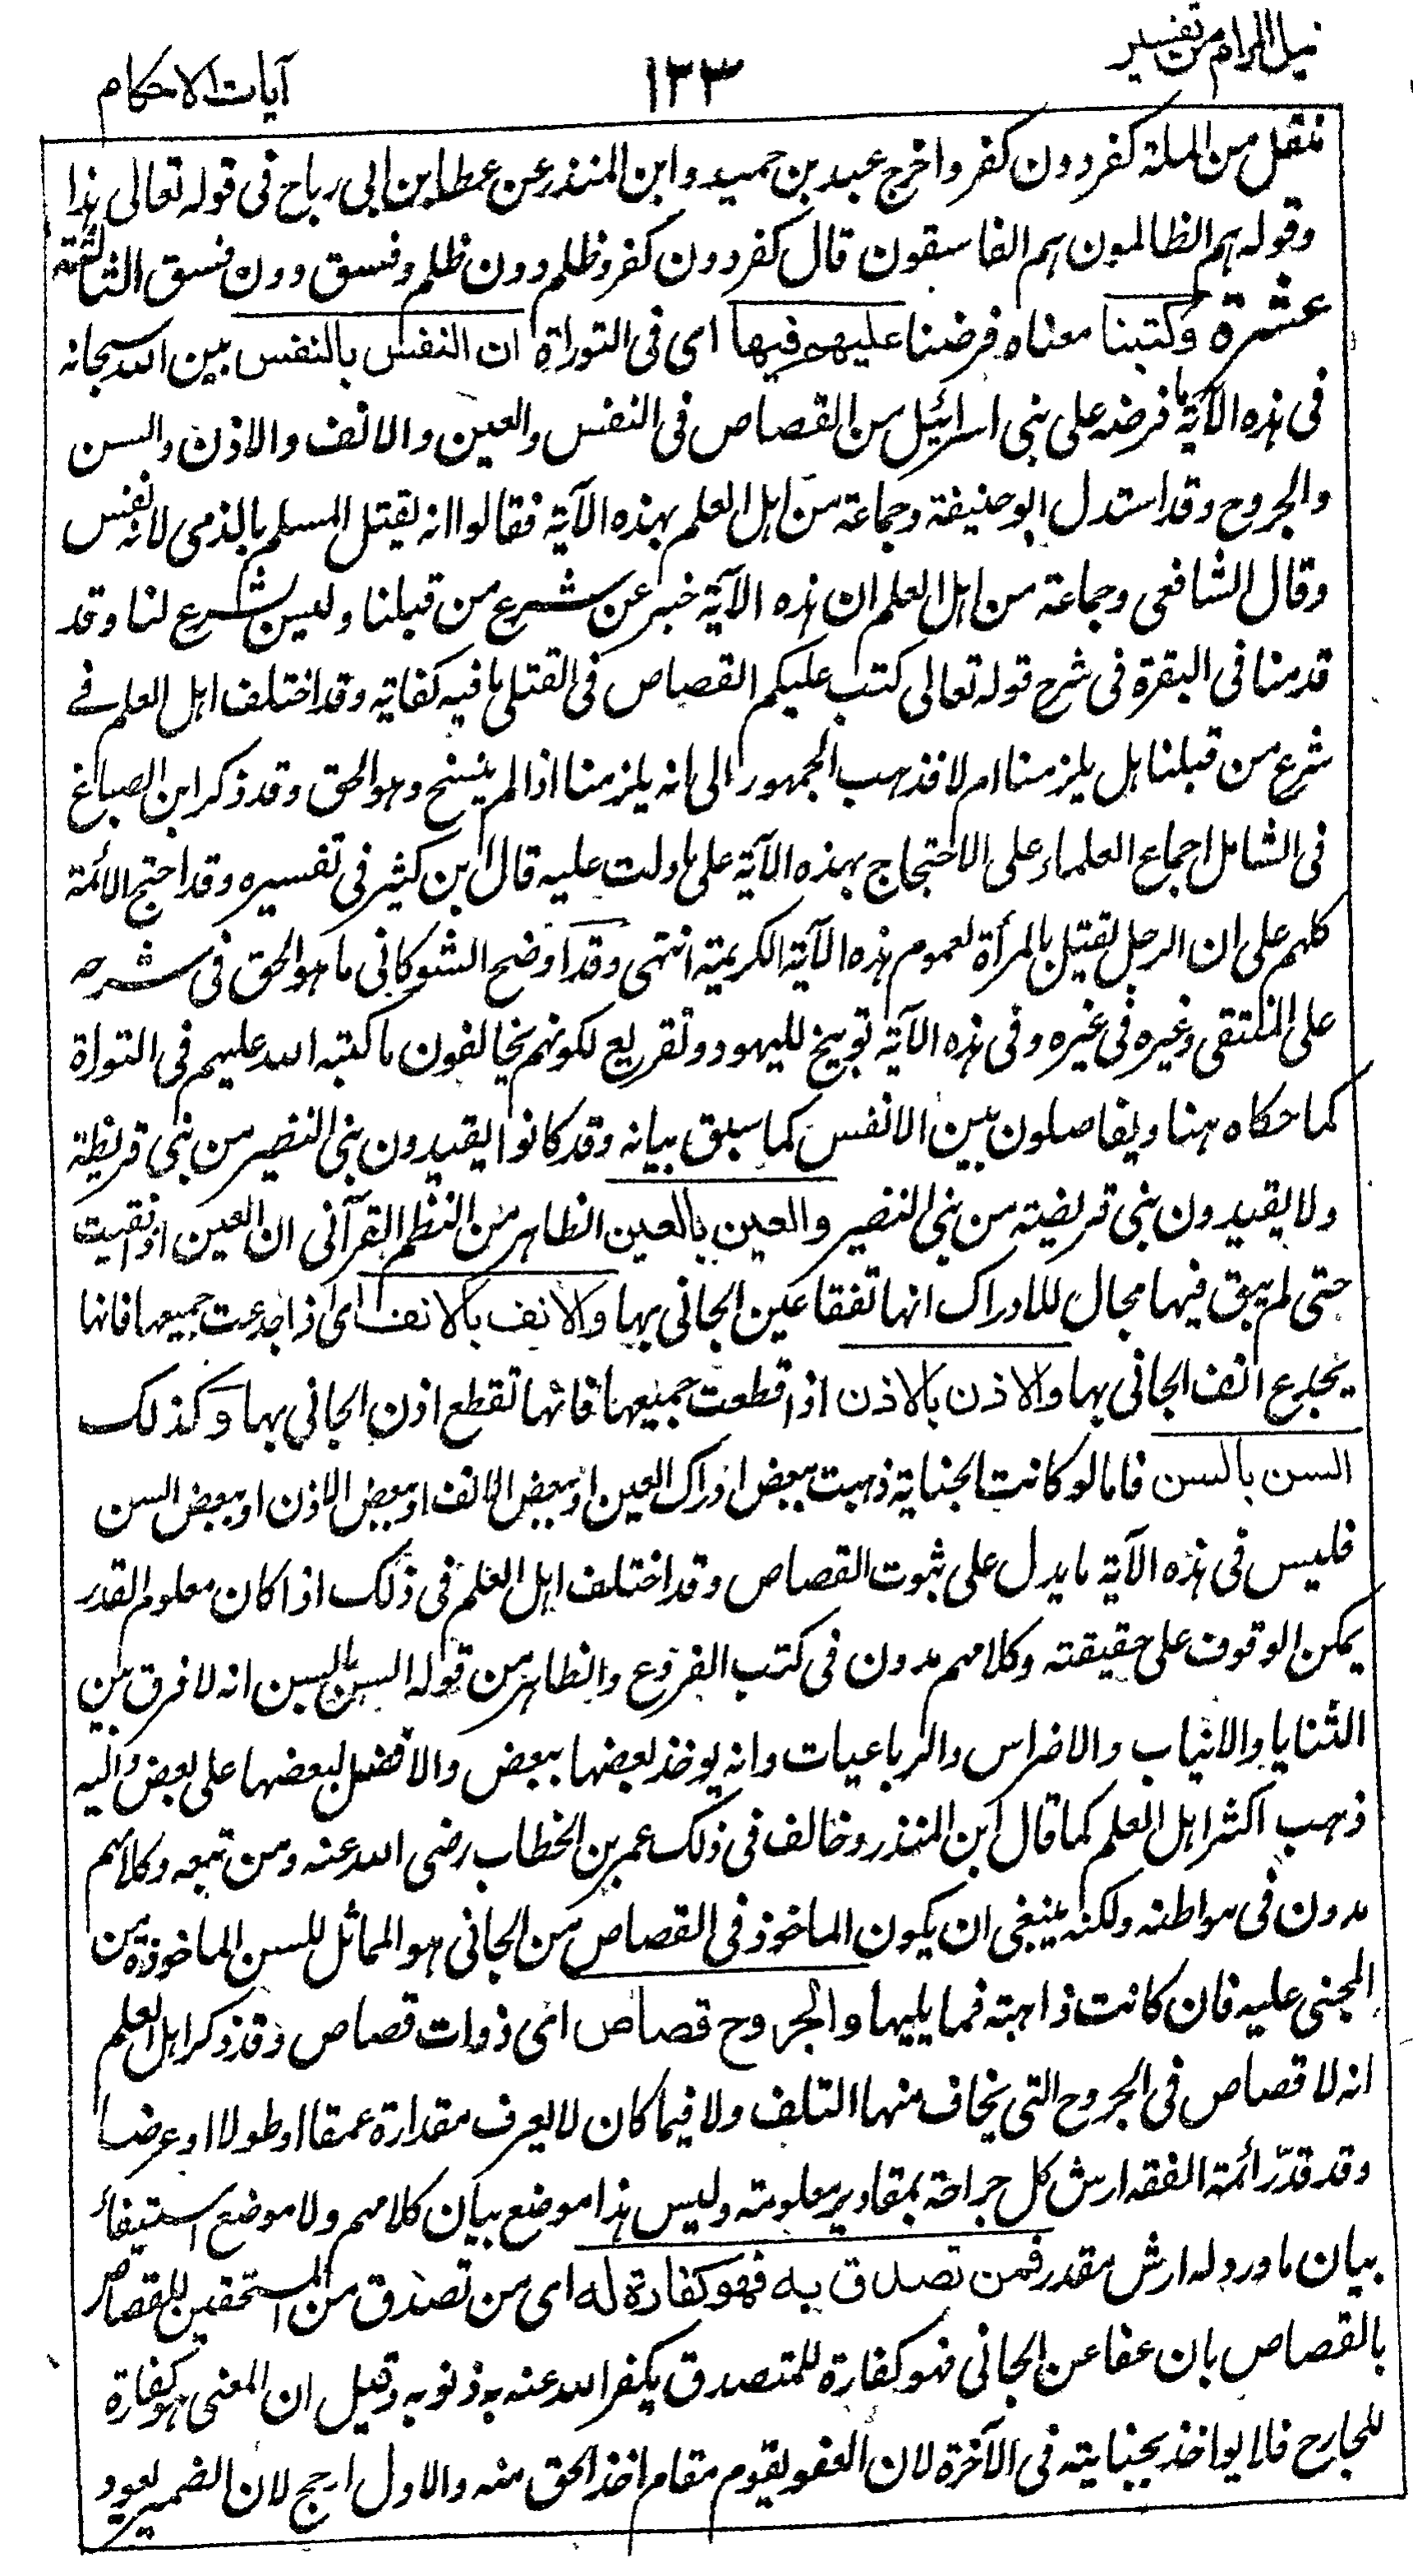 نيل المرام من تفسير
١٣٣
آيات الاحكام
ننقل من الملة كفر دون كفر واخرج عبد بن حميد وابن المنذر عن عطا بن ابى رباح فى قوله تعالى هذا
وقوله هم الظالمون هم الفاسقون قال كفر دون كفر وظلم دون ظلم وفسق دون فسق الثالثة
عشرة وكتبنا معناه فرضنا عليهم فيها اى فى التوراة ان النفس بالنفس بين الله سبحانه
فى هذه الآية ما فرضه على بنى اسرائيل من القصاص فى النفس والعين والانف والاذن والسن
والجروح وقد استدل ابو حنيفة وجماعة من اهل العلم بهذه الآية فقالوا انه يقتل المسلم بالذمى لانه نفس
وقال الشافعى وجماعة من اهل العلم ان هذه الآية خبر عن شرع من قبلنا وليس بشرع لنا وقد
قدمنا فى البقرة فى شرح قوله تعالى كتب عليكم القصاص فى القتلى ما فيه كفاية وقد اختلف اهل العلم فى
شرع من قبلنا هل يلزمنا ام لا فذهب الجمهور الى انه يلزمنا اذا لم ينسخ وهو الحق وقد ذكر ابن الصباغ
فى الشامل اجماع العلماء على الاحتجاج بهذه الآية على ما دلت عليه قال ابن كثير فى تفسيره وقد احتج الائمة
كلهم على ان الرجل يقتل بالمرأة لعموم هذه الآية الكريمة انتهى وقد اوضح الشوكانى ما هو الحق فى شرحه
على المنتقى وغيره فى غيره وفى هذه الآية توبيخ لليهود وتقريع لكونهم يخالفون ما كتبه الله عليهم فى التوراة
كما حكاه هنا ويفاضلون بين الانفس كما سبق بيانه وقد كانوا يقيدون بنى النضير من بنى قريظة
ولا يقيدون بنى قريضة من بنى النضير والعين بالعين الظاهر من النظم القرآنى ان العين اذا فقيت
حتى لم يبق فيها مجال للادراك انها تفقا عين الجانى بها والانف بالانف اى اذا جدعت جميعها فانها
يجدع انف الجانى بها والاذن بالاذن اذا قطعت جميعها فانها تقطع اذن الجانى بها وكذلك
السن بالسن فاما لو كانت الجناية ذهبت ببعض ادراك العين او ببعض الانف او ببعض الاذن او ببعض السن
فليس فى هذه الآية ما يدل على ثبوت القصاص وقد اختلف اهل العلم فى ذلك اذا كان معلوم القدر
يمكن الوقوف على حقيقته وكلامهم مدون فى كتب الفروع والظاهر من قوله السن بالسن انه لا فرق بين
الثنايا والانياب والاضراس والرباعيات وانه يوخذ بعضها ببعض والافضل لبعضها على بعض واليه
ذهب اكثر اهل العلم كما قال ابن المنذر وخالف فى ذلك عمر بن الخطاب رضى الله عنه ومن تبعه وكلامهم
مدون فى مواطنه ولكنه ينبغى ان يكون الماخوذ فى القصاص من الجانى هو المماثل للسن الماخوذة من
المجنى عليه فان كانت ذاهبة فما يليها والجروح قصاص اى ذوات قصاص وقد ذكر اهل العلم
انه لا قصاص فى الجروح التى يخاف منها التلف ولا فيما كان لا يعرف مقدارة عمقا او طولا او عرضا
وقد قدّر ائمة الفقه ارش كل جراحة بمقادير معلومة وليس هذا موضع بيان كلامهم ولا موضع استيفاء
بيان ما ورد له ارش مقدر فمن تصدق به فهو كفارة له اى من تصدق من المستحقين للقصاص
بالقصاص بان عفا عن الجانى فهو كفارة للمتصدق يكفر الله عنه به ذنوبه وقيل ان المعنى هو كفارة
للجارح فلا يواخذ بجنايته فى الآخرة لان العفو يقوم مقام اخذ الحق منه والاول ارجح لان الضمير يعود